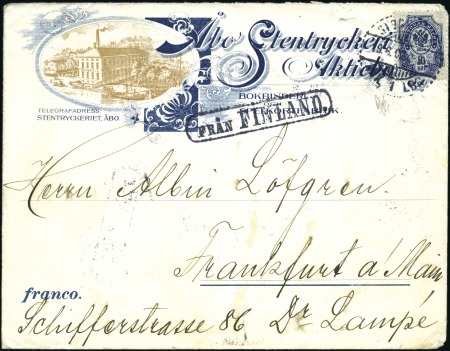 Åbo Stentryckeri
Aktieb
BOKBINDERI
TELEGRAFADRESS:
STENTRYCKERIET, ÅBO
FRÅN FINLAND.
10
Herrn Albin Löfgren.
Frankfurt a/Main
franco.
Schifferstrasse 86 Dr Lampé